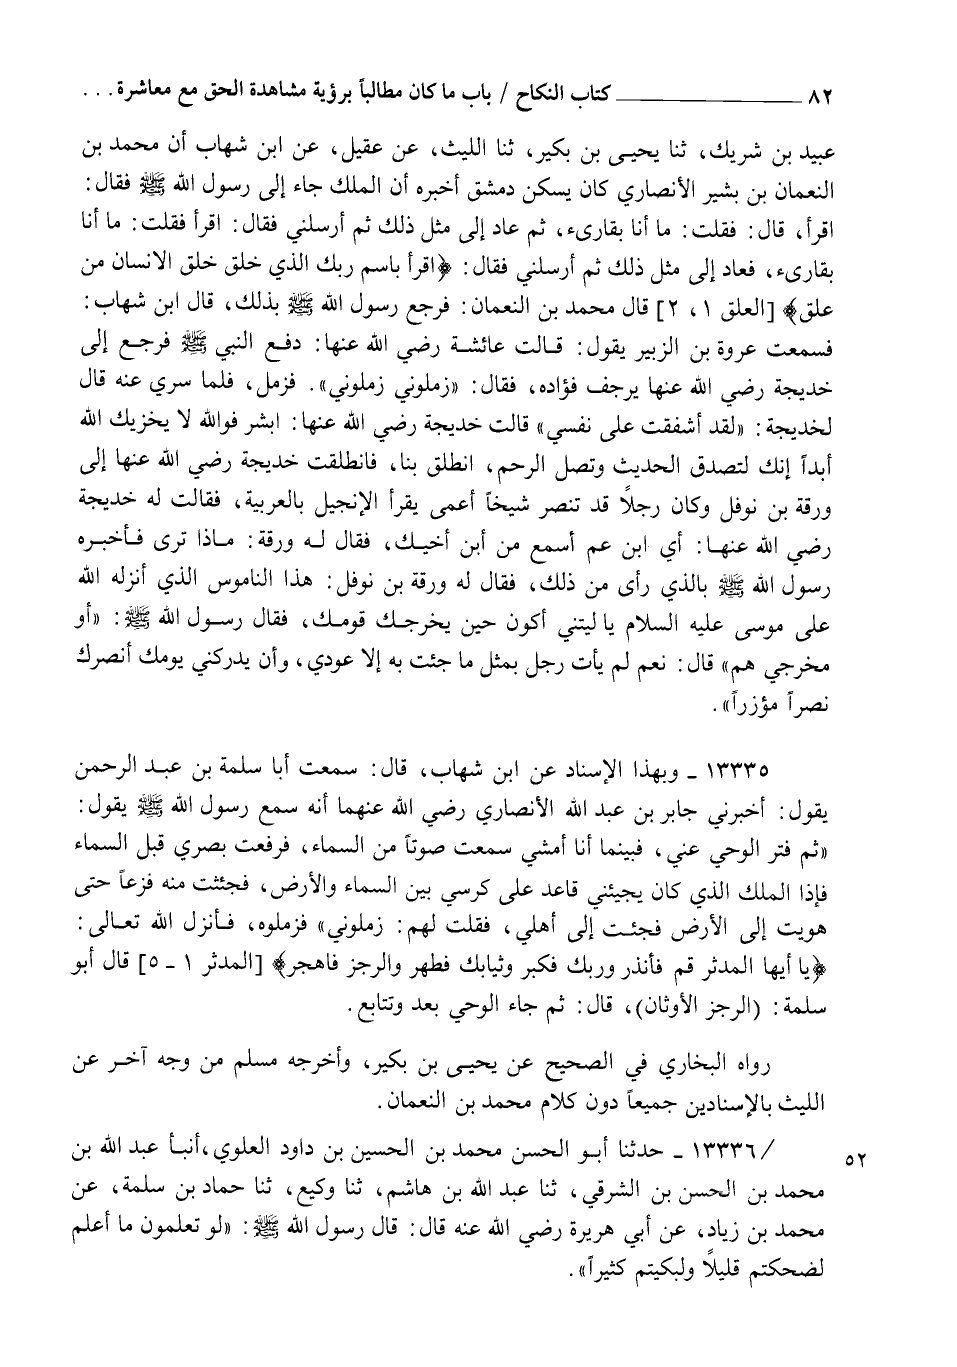 ٨٢ ــــــــــــــــــــ كتاب النكاح / باب ما كان مطالباً برؤية مشاهدة الحق مع معاشرة . . .
عبيد بن شريك، ثنا يحيـى بن بكير، ثنا الليث، عن عقيل، عن ابن شهاب أن محمد بن
النعمان بن بشير الأنصاري كان يسكن دمشق أخبره أن الملك جاء إلى رسول الله ﷺ فقال:
اقرأ، قال: فقلت: ما أنا بقارىء، ثم عاد إلى مثل ذلك ثم أرسلني فقال: اقرأ فقلت: ما أنا
بقارىء، فعاد إلى مثل ذلك ثم أرسلني فقال: ﴿اقرأ باسم ربك الذي خلق خلق الانسان من
علق﴾ [العلق ١، ٢] قال محمد بن النعمان: فرجع رسول الله ﷺ بذلك، قال ابن شهاب:
فسمعت عروة بن الزبير يقول: قـالت عائشـة رضي الله عنها: دفـع النبي ﷺ فرجـع إلى
خديجة رضي الله عنها يرجف فؤاده، فقال: «زملوني زملوني». فزمل، فلما سري عنه قال
لخديجة: «لقد أشفقت على نفسي» قالت خديجة رضي الله عنها: ابشر فوالله لا يخزيك الله
أبداً إنك لتصدق الحديث وتصل الرحم، انطلق بنا، فانطلقت خديجة رضي الله عنها إلى
ورقة بن نوفل وكان رجلاً قد تنصر شيخاً أعمى يقرأ الإنجيل بالعربية، فقالت له خديجة
رضي الله عنهـا: أي ابن عم أسمع من أبن أخيـك، فقال لـه ورقة: مـاذا ترى فـأخبـره
رسول الله ﷺ بالذي رأى من ذلك، فقال له ورقة بن نوفل: هذا الناموس الذي أنزله الله
على موسى عليه السلام يا ليتني أكون حين يخرجـك قومـك، فقال رسـول الله ﷺ: «أو
مخرجي هم» قال: نعم لم يأت رجل بمثل ما جئت به إلا عودي، وأن يدركني يومك أنصرك
نصراً مؤزراً».
١٣٣٣٥ ـ وبهذا الإسناد عن ابن شهاب، قال: سمعت أبا سلمة بن عبـد الرحمن
يقول: أخبرني جابر بن عبد الله الأنصاري رضي الله عنهما أنه سمع رسول الله ﷺ يقول:
«ثم فتر الوحي عني، فبينما أنا أمشي سمعت صوتاً من السماء، فرفعت بصري قبل السماء
فإذا الملك الذي كان يجيئني قاعد على كرسي بين السماء والأرض، فجئثت منه فزعاً حتى
هويت إلى الأرض فجئـت إلى أهلي، فقلت لهم: زملوني» فزملوه، فـأنزل الله تعـالى:
﴿يا أيها المدثر قم فأنذر وربك فكبر وثيابك فطهر والرجز فاهجر﴾ [المدثر ١ ـ ٥] قال أبو
سلمة: (الرجز الأوثان)، قال: ثم جاء الوحي بعد وتتابع.
رواه البخاري في الصحيح عن يحيـى بن بكير، وأخرجه مسلم من وجه آخـر عن
الليث بالإسنادين جميعاً دون كلام محمد بن النعمان.
/ ١٣٣٣٦ ـ حدثنا أبـو الحسن محمد بن الحسين بن داود العلوي، أنبـأ عبد الله بن
٥٢
محمد بن الحسن بن الشرقي، ثنا عبد الله بن هاشم، ثنا وكيع، ثنا حماد بن سلمة، عن
محمد بن زياد، عن أبي هريرة رضي الله عنه قال: قال رسول الله ﷺ: «لو تعلمون ما أعلم
لضحكتم قليلاً ولبكيتم كثيراً».